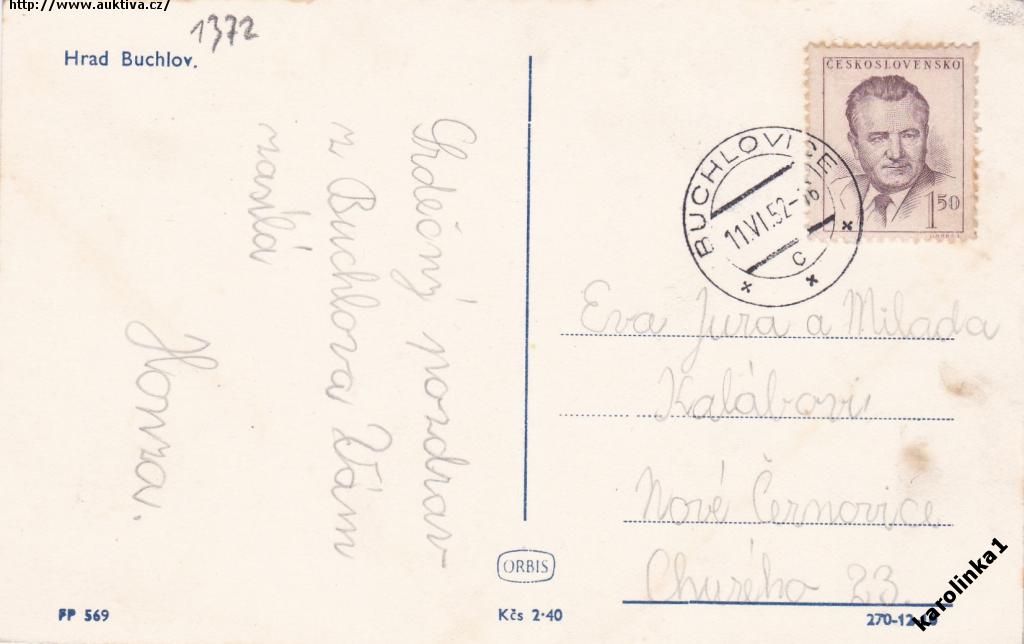 http://www.auktiva.cz/
1372
Hrad Buchlov.
Srdečný pozdrav
z Buchlova Vám
zasílá
Honza.
ČESKOSLOVENSKO
1 50
BUCHLOVICE
11.VI.52-16
C
Eva Jura a Milada
Kalábovi
Nové Černovice
23.
ORBIS
FP 569
Kčs 2·40
karolinka1